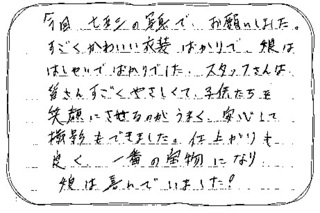 今回、七五三の写真で、お願いしました。
すごくかわいい衣装ばかりで、娘は
はしゃいでばかりでした。スタッフさんは
皆さんすごくやさしくて、子供たちを
笑顔にさせるのがうまく、安心して
撮影もできました。仕上がりも
良く、一番の宝物になり
娘は喜んでいました!